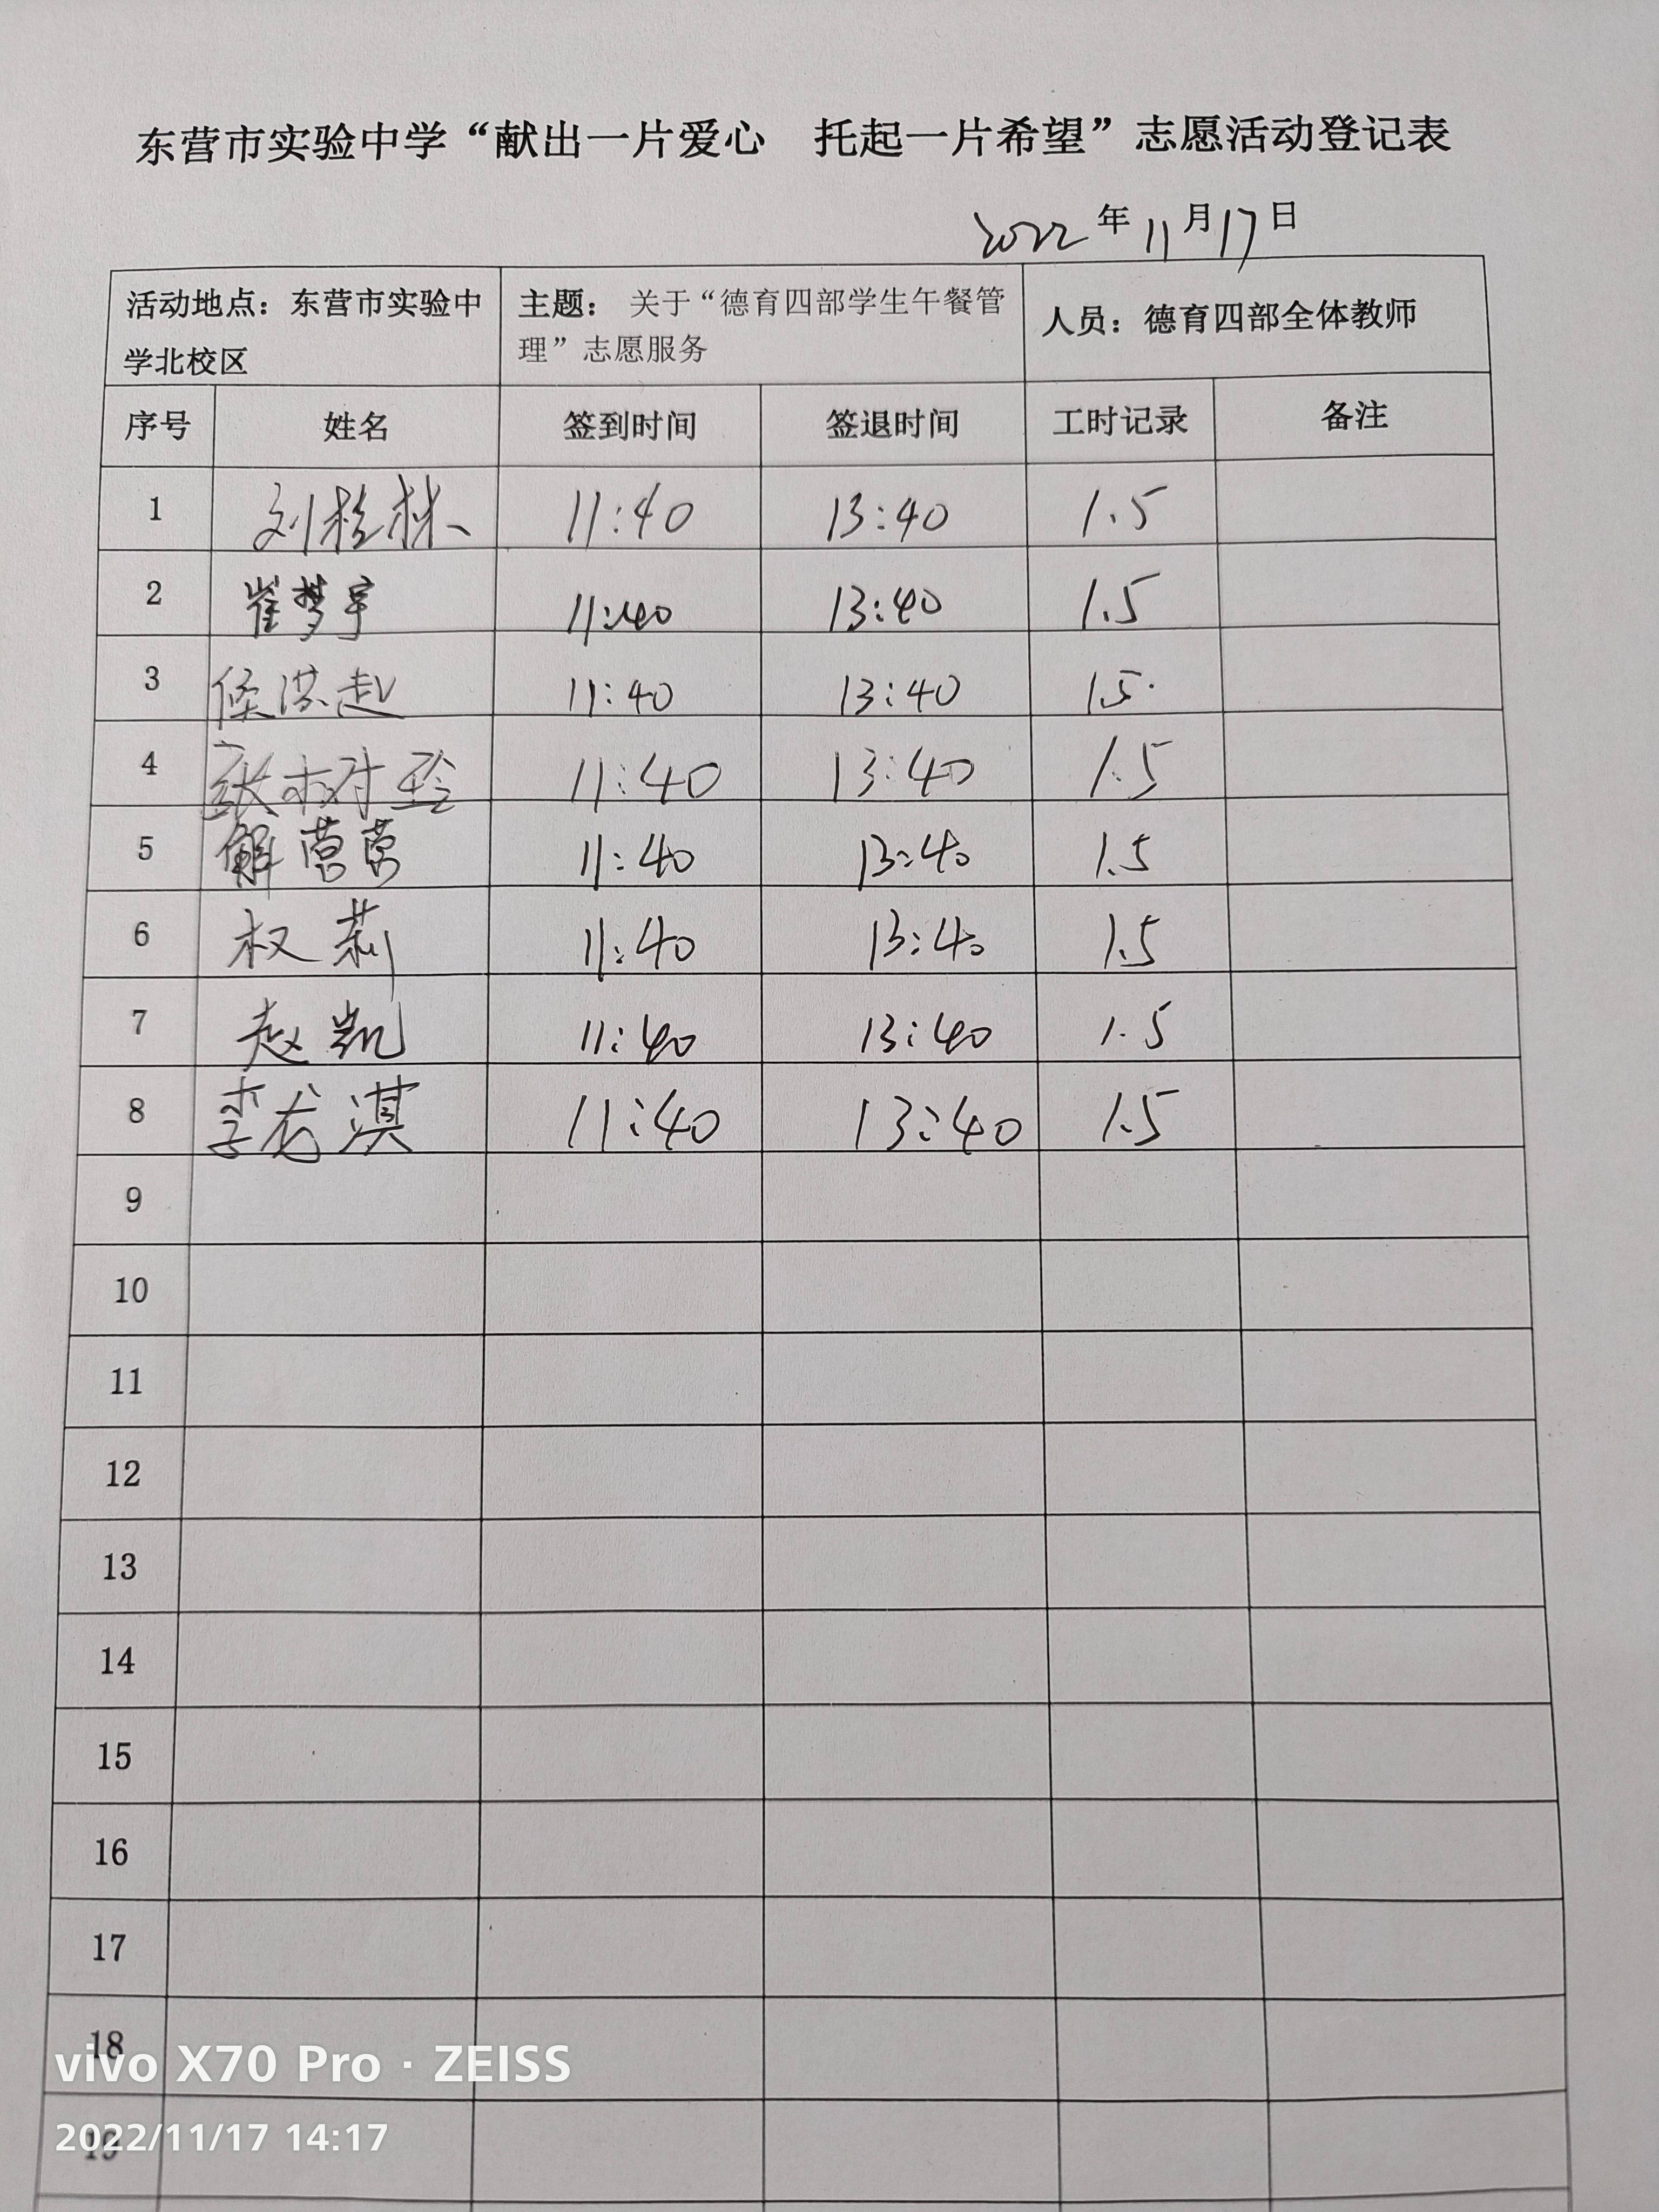 东营市实验中学“献出一片爱心 托起一片希望”志愿活动登记表
2022年11月17日
活动地点：东营市实验中学北校区 主题：关于“德育四部学生午餐管理”志愿服务 人员：德育四部全体教师
序号 姓名 签到时间 签退时间 工时记录 备注
1 刘桂林 11:40 13:40 1.5
2 崔梦宇 11:40 13:40 1.5
3 侯洪起 11:40 13:40 1.5
4 张树玲 11:40 13:40 1.5
5 解营营 11:40 13:40 1.5
6 权莉 11:40 13:40 1.5
7 赵凯 11:40 13:40 1.5
8 李龙淇 11:40 13:40 1.5
9
10
11
12
13
14
15
16
17
18
vivo X70 Pro · ZEISS
2022/11/17 14:17
19